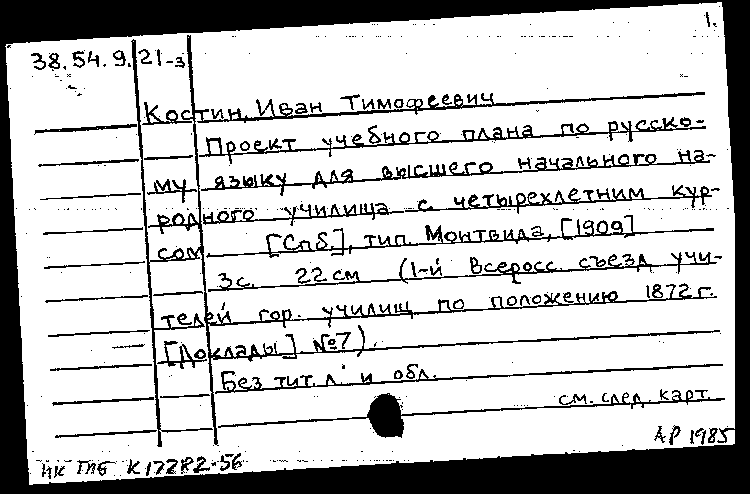 1.
38.54.9.21-3
Костин, Иван Тимофеевич
Проект учебного плана по русско-
му языку для высшего начального на-
родного училища с четырехлетним кур-
сом. [Спб.], тип. Монтвида, [1909]
3 с. 22 см (1-й Всеросс. съезд учи-
телей гор. училищ по положению 1872 г.
[Доклады]. №7).
Без тит. л. и обл.
см. след. карт.
АР 1985
НК ГПБ К17282-56